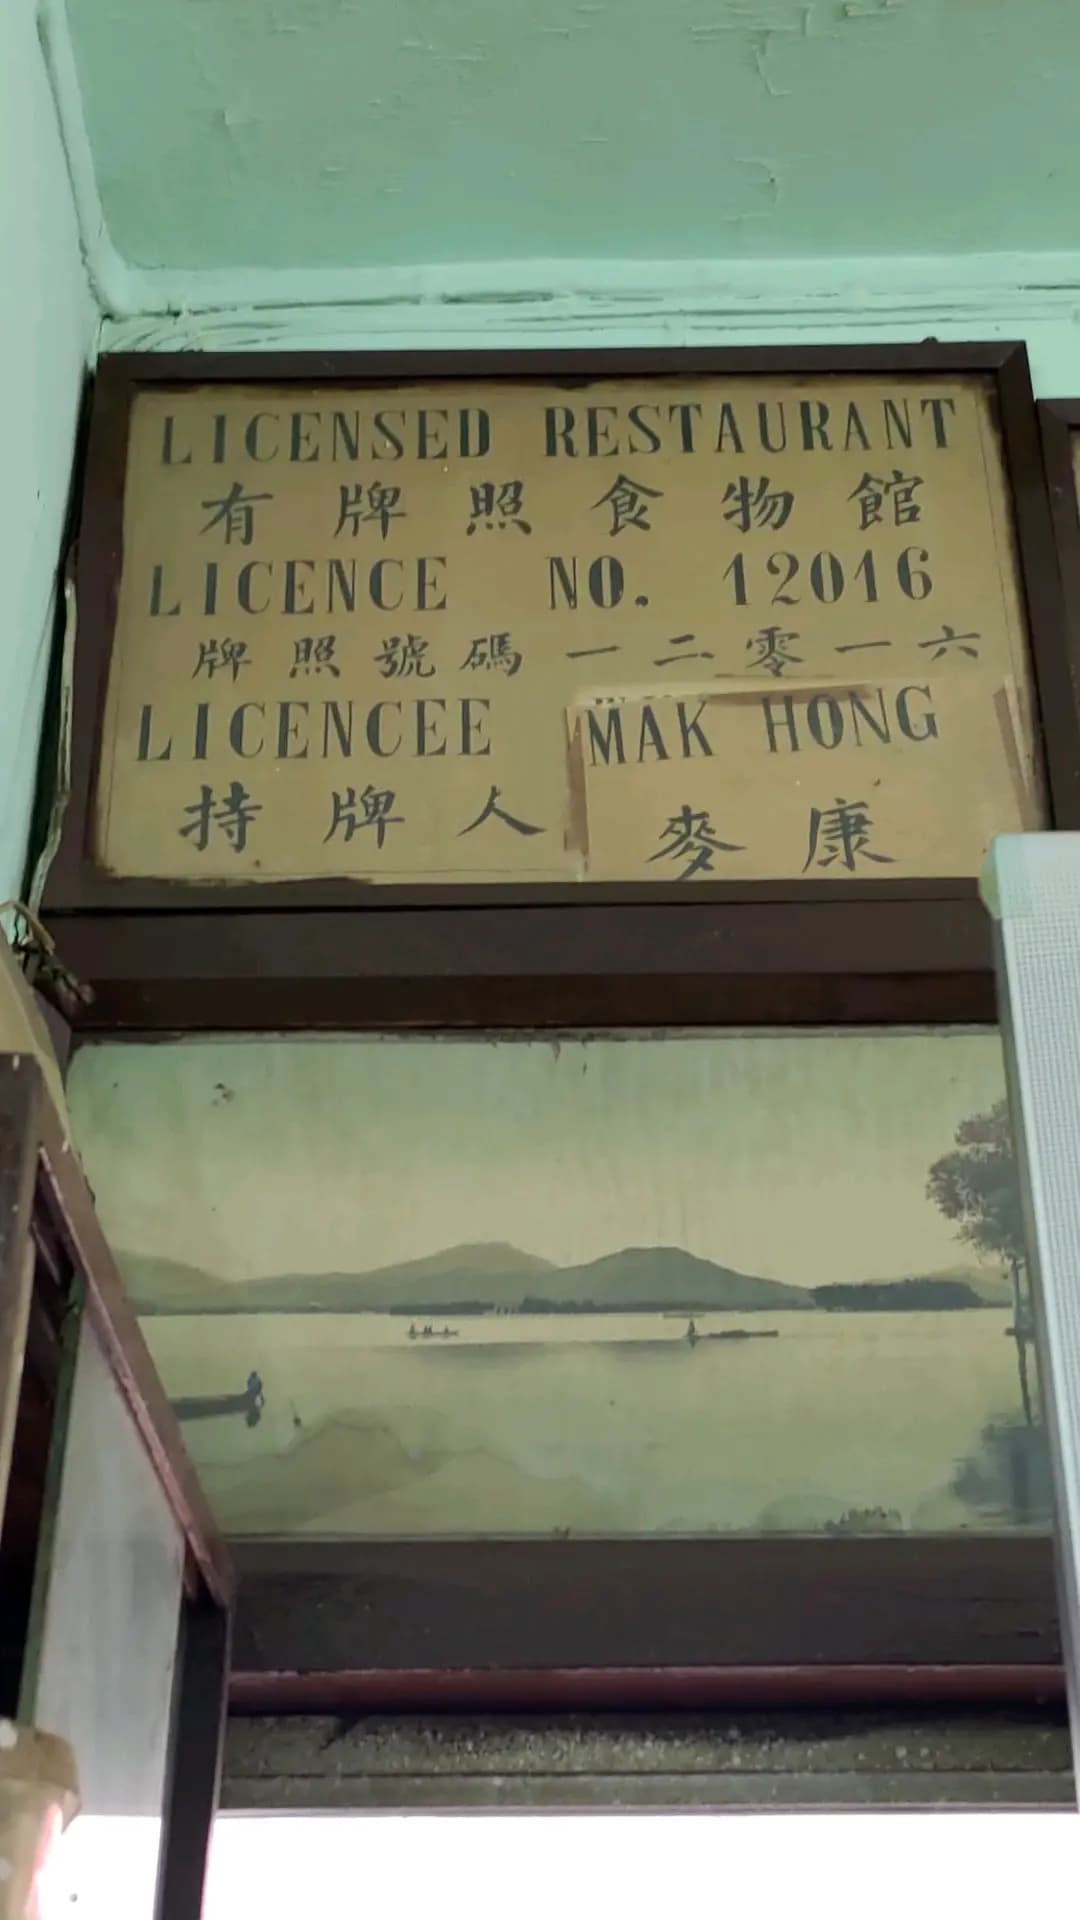 LICENSED RESTAURANT
有牌照食物館
LICENCE NO. 12016
牌照號碼一二零一六
LICENCEE MAK HONG
持牌人 麥康